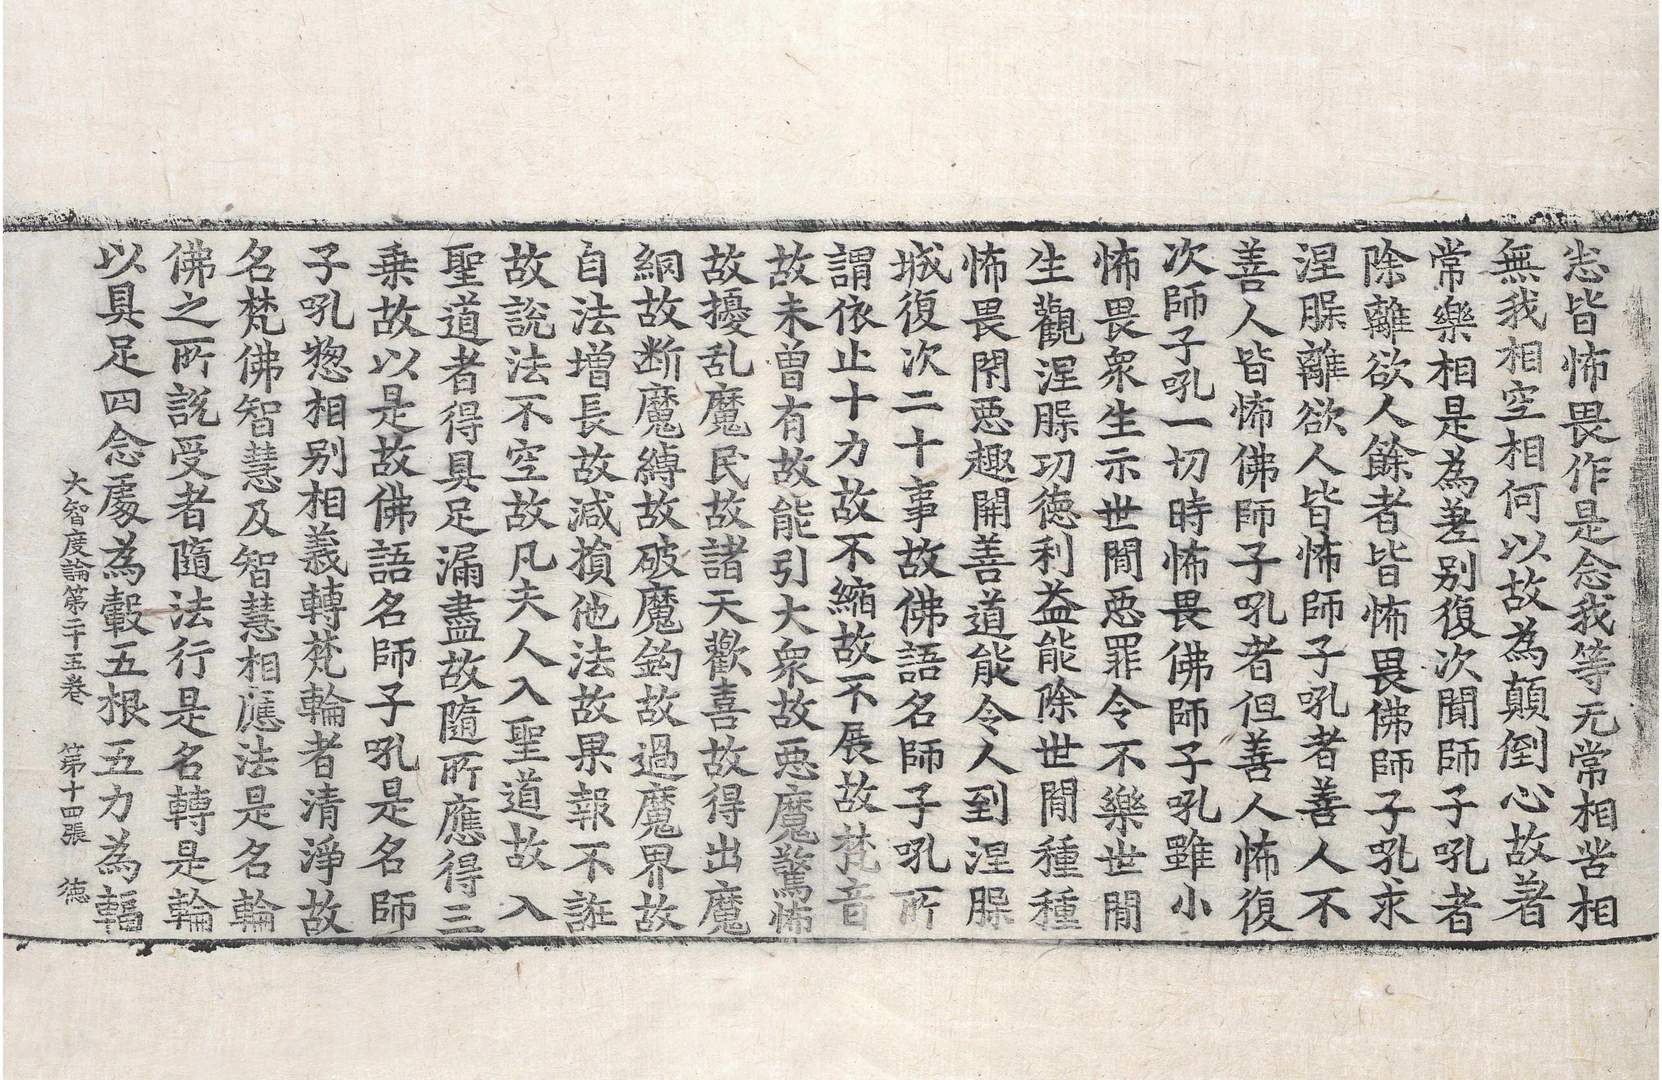 忠皆怖畏作是念我等无常相苦相
無我相空相何以故為顛倒心故著
常樂相是為差别復次聞師子吼者
除離欲人餘者皆怖畏佛師子吼求
涅槃離欲人皆怖師子吼者善人不
善人皆怖佛師子吼者但善人怖復
次師子吼一切時怖畏佛師子吼雖小
怖畏衆生示世間惡罪令不樂世間
生觀涅槃功徳利益能除世間種種
怖畏閇惡趣開善道能令人到涅槃
城復次二十事故佛語名師子吼所
謂依止十力故不縮故不展故梵音
故未曽有故能引大衆故惡魔驚怖
故擾乱魔民故諸天歡喜故得出魔
網故断魔縛故破魔鈎故過魔界故
自法增長故減損他法故果報不誑
故說法不空故凡夫人入聖道故入
聖道者得具足漏盡故隨所應得三
乗故以是故佛語名師子吼是名師
子吼惣相别相義轉梵輪者清淨故
名梵佛智慧及智慧相應法是名輪
佛之所說受者隨法行是名轉是輪
以具足四念處為轂五根五力為輻
大智度論第二十五卷 第十四張 徳